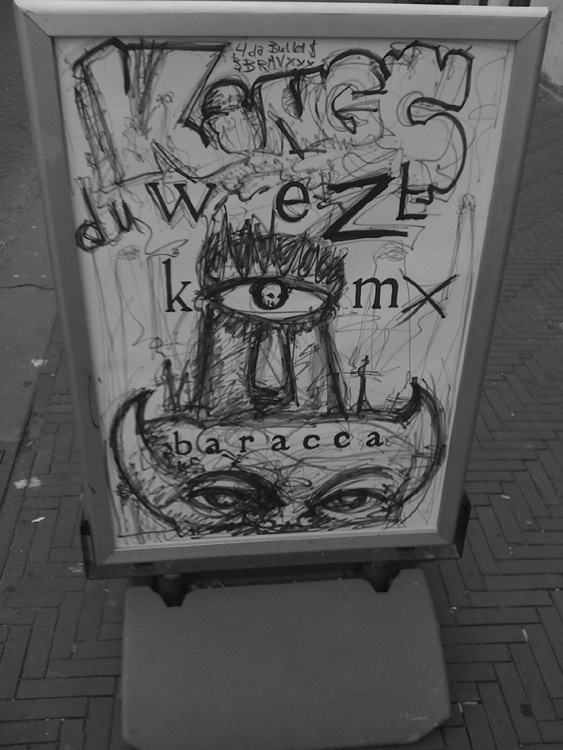 4 da Bullet$
$BRAVXXX
KONGS
du wEZE
k mX
baracca